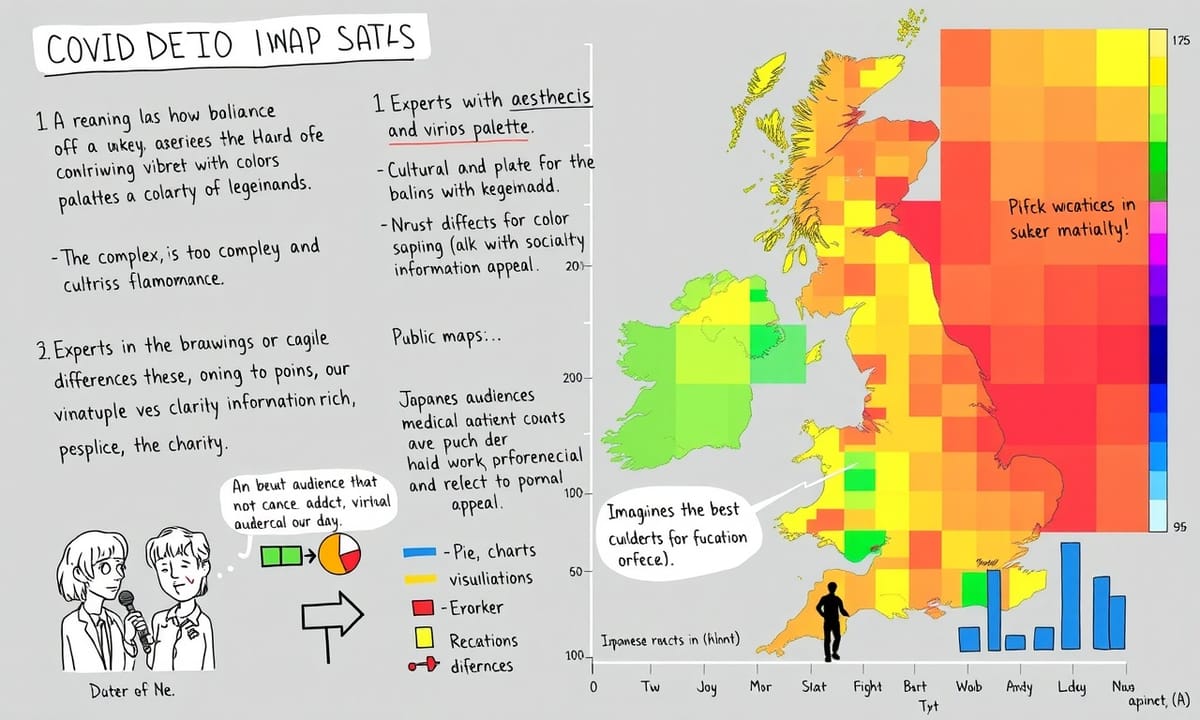 COVID DETO IWAP SATLS
1 A reaning las how boliance
off a ukey, aseriees the Hard ofe
conlriwing vibret with colors
palattes a colarty of legeinands.
- The complex, is too compley and
cultriss flamomance.
3. Experts in the brawings or cagile
differences these, oning to poins, our
vinatuple ves clarity information rich,
pesplice, the charity.
An beut audience that
not cance addct, virtual
audercal our day.
Dater of Ne.
1 Experts with aesthecis
and virios palette.
- Cultural and plate for the
balins with kegeinadd.
- Nrust diffects for color
sapling (alk with socialty
information appeal.
Public maps:..
Japanes audiences
medical aatient couats
ave puch der
haid work, prforenecial
and relect to pornal
appeal.
- Pie, charts
visulliations
- Erorker
Recations
difernces
201
200
100
50
100
Pifck wcatices in
suker matialty!
175
95
Imagines the best
culderts for fucation
orfece).
Impanese reacts in (hlnnt)
0 Tw Joy Mor Slat Fight Bart Wob Andy Ldey Nus
Tyt
apinct, (A)